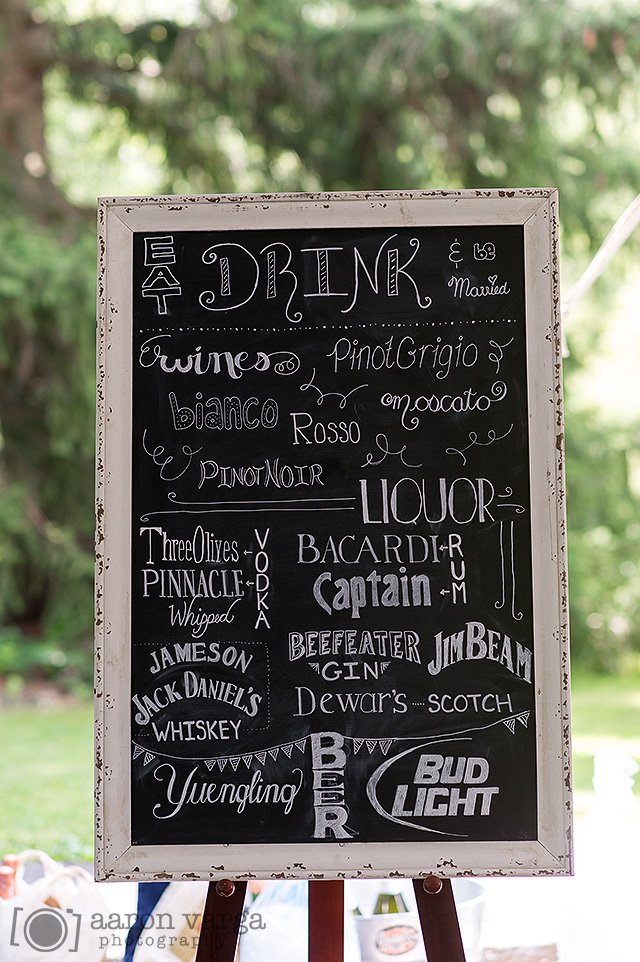 EAT DRINK & be Married
wines Pinot Grigio
bianco Rosso moscato
PINOT NOIR
LIQUOR
Three Olives VODKA
PINNACLE
Whipped
BACARDI RUM
Captain
JAMESON
JACK DANIEL'S
WHISKEY
BEEFEATER
GIN
JIM BEAM
DEWAR'S SCOTCH
Yuengling BEER BUD LIGHT
aaron varga
photography